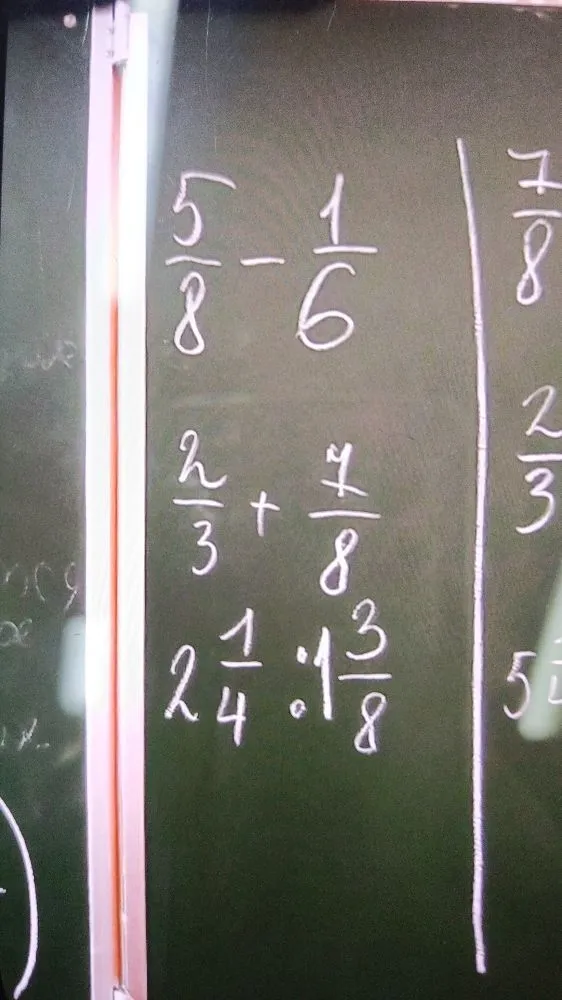 5/8 - 1/6
2/3 + 7/8
2 1/4 : 1 3/8
7/8
2/3
5